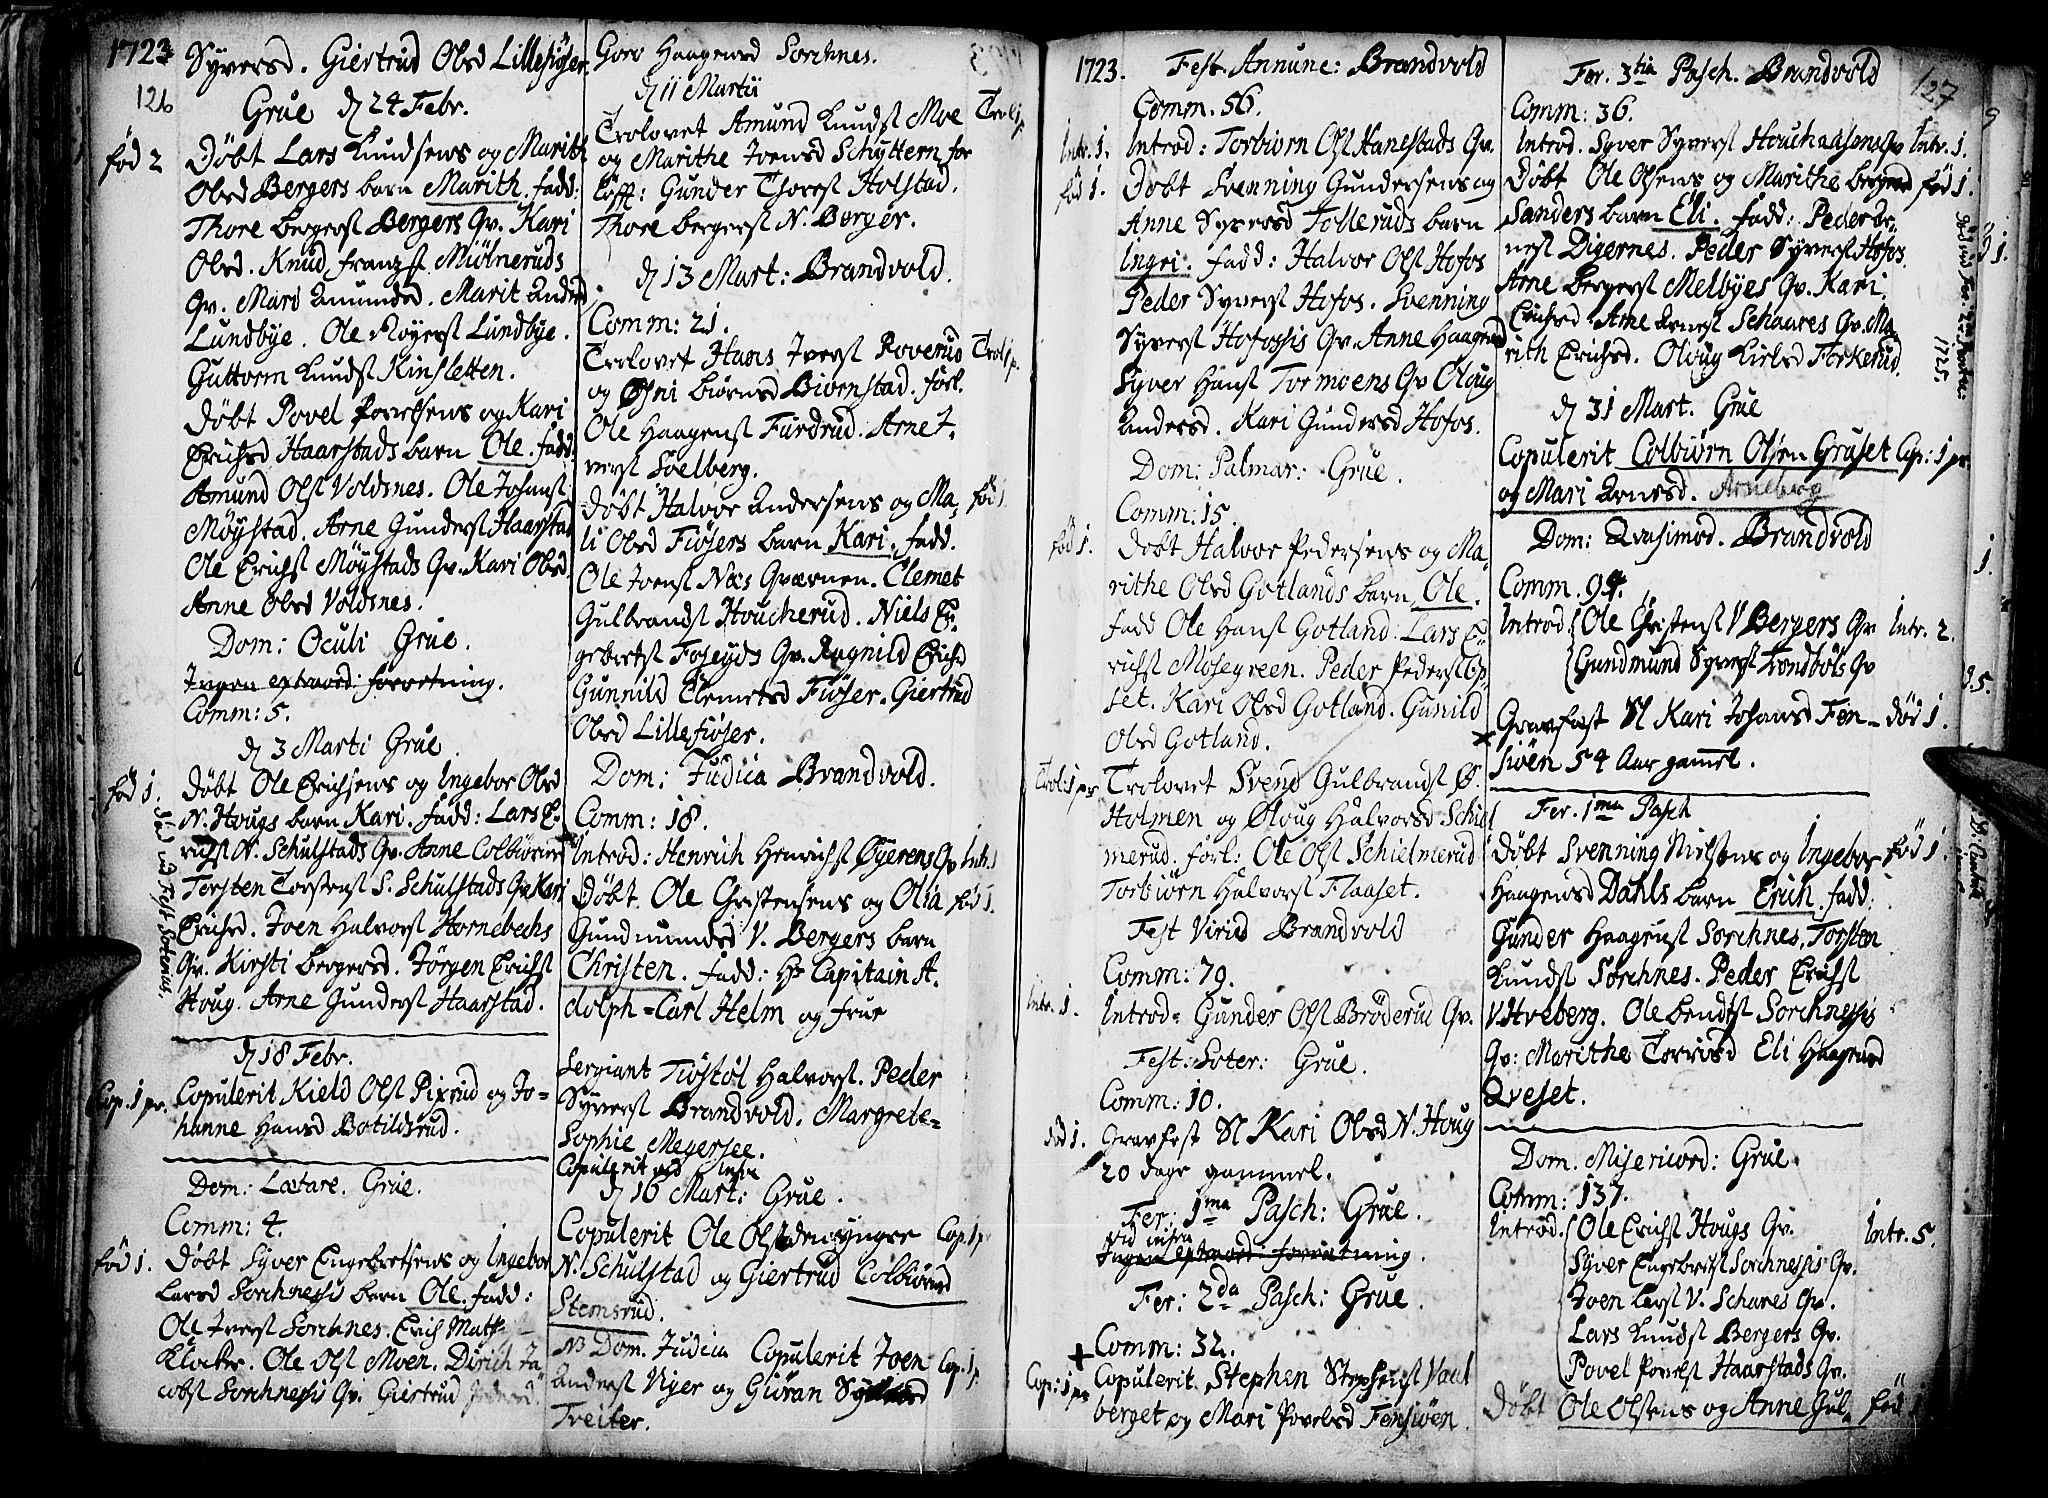 1723
126
Syversd. Giertrud Olsd Lillefiøser
Grue d 24 Febr.
fød 2
Døbt Lars Knudsens og Marith
Olsd Bergers barn Marith. fadd:
Thore bergers Bergers Qv. Kari
Olsd. Knud franzs Miølneruds
Qv. Mari Amundsd. Marit Andersd
Lundbye. Ole Røyers Lundbye.
Guttorm Knuds Kinsletten.
Døbt Povel Povelsens og Kari
Erichsd Haarstads barn Ole. fadd
Amund Ols Voldsnes. Ole Johans
Møystad. Arne Gunders Haarstad
Ole Erichs Møystads Qv. Kari Olsd
Anne Olsd Voldsnes.
Dom: Oculi Grue.
Ingen extraord: forretning.
Comm: 5.
d 3 Marti Grue.
fød 1.
Døbt Ole Erichsens og Ingebor Olsd
N. Hougs barn Kari. fadd: Lars E-
richs N. Schulstads Qv. Anne Colbiørnsd
Torsten Torstens S. Schulstads Qv. Kari
Erichsd. Joen Halvors Hornebechs
Qv. Kirsti bergersd. Jørgen Erichs
Houg. Arne Gunders Haarstad.
død vid Fest Soterud.
d 18 Febr.
Cop. 1 pr.
Copulerit Kield Ols Pixrud og Jo=
hanne Hansd Botildsrud.
Dom: Lætare. Grue.
Comm: 4.
fød 1.
Døbt Syver Engebertsens og Ingebor
Larsd Sorchnessis barn Ole. fadd:
Ole Ivers Sorchnes. Erich
Klocker. Ole Ols Moen. Dirich Ja
cobs Sorchnessis Qv. Giertrud
Goro Haagensd Sorchnes.
d 11 Martii
Trolovet Amund Knuds Moe
Trol. 1 p.
og Marithe Ivensd Schyttern for
løff: Gunder Thores Holstad.
Thore bergers N. Berger.
d 13 Mart: Brandvold.
Comm: 21.
Trolovet Hans Ivers Roverud
Trol. 1 p.
og Øhni biørnsd Biornstad. forl.
Ole Haagens Furdrud. Arne I-
vers Soelberg.
Døbt Halvor Andersens og Ma-
fød 1
li Olsd Fiøsers barn Kari. fadd.
Ole Joens Næs Qværnen. Clemet
Gulbrands Houcherud. Niels En-
geberts Foseyds Qv. Ragnild Erichsd
Gunnild Clemetsd Fiøser. Giertrud
Olsd Lillefiøser.
Dom: Judica Brandvold.
Comm: 18.
Introd: Henrich Henrichs Øyerens Qv
Intr. 1
Døbt Ole Christensens og Olia
fød 1.
Gundmundsd V. Bergers barn
Christen. fadd: Hr Capitain A.
dolph=Carl Helm og frue
Sergiant Tiøstøl Halvors. Peder
Syvers Brandvold. Margrete=
Sophie Megersee.
Copulerit vid infra
d 16 Mart: Grue.
Copulerit Ole Ols den yngre
Cop. 1 p
N. Schulstad og Giertrud Colbiørnsd
Stemsrud.
NB Dom. Judica Copulerit Joen
Cop. 1 p.
Anders Nyer og Giøran
Treifer.
1723.
Fest Annunc: Brandvold
Comm. 56.
Intr. 1.
Introd: Torbiørn Ols Hanestads Qv.
fød 1.
Døbt Svenning Gundersens og
Anne Syversd Tolleruds barn
Ingri. fadd: Halvor Ols Hofos
Peder Syvers Hofos. Svenning
Syvers Hofossis Qv. Anne Haagensd
Syver Hans Tormoens Qv Oloug
Andersd. Kari Gundersd Hofos.
Dom: Palmar: Grue.
Comm: 15.
fød 1.
Døbt Halvor Pedersens og Ma-
rithe Olsd Gotlands barn Ole.
fadd Ole Hans Gotland. Lars E-
richs Mosegreen. Peder Peders Op-
set. Kari Olsd Gotland. Gunild
Olsd Gotland.
Trol: 1 pr
Trolovet Svend Gulbrands Ø.
Holmen og Oloug Halvorsd Schiel
merud. forl: Ole Ols Schielmerud
Torbiørn Halvors Flaaset.
Fest Virid Brandvold
Comm: 79.
Intr. 1.
Introd= Gunder Ols Brøderud Qv.
Fest: Soter: Grue.
Comm: 10.
død 1.
Gravfest Sl Kari Olsd N. Houg
20 dage gammel.
Fer: 1ma Pasch: Grue.
vid infra
Ingen extraord: forretning.
Fer: 2da Pasch: Grue.
Comm: 32.
Cop: 1 pr
Copulerit Stephen Stephens Vaal
berget og Mari Povelsd Fensiøen.
127
Fer. 3tia Pasch. Brandvold
Comm: 36.
Introd. Syver Syvers Qv
Intr. 1.
Døbt Ole Olsens og Marithe bergersd
fød 1.
Sanders barn Eli. fadd: Peder Ar-
nes Digernes. Peder Syvers Hofos.
Arne bergers Melbyes Qv. Kari
Erichsd. Arne Arnes Schaares Qv. Ma
rith Erichsd. Oloug Kielsd Torkerud.
d 31 Mart. Grue
Copulerit Colbiørn Olsen Gruset
Cop: 1 pr
og Mari Arnesd. Arneberg
Dom: Qvasimod. Brandvold
Comm. 94.
Introd. Ole Christens V Bergers Qv
Intr. 2.
Gundmund Syvers Trondbøls Qv
Gravfæst Sl Kari Johansd Fen-
død 1.
siøen 54 Aar gammel.
Fer. 1ma Pasch
Døbt Svenning Nielsens og Ingebor
fød 1.
Haagensd Dahls barn Erich. fadd:
Gunder Haagens Sorchnes. Torsten
Knuds Sorchnes. Peder Erichs
V. Hveberg. Ole bendts Sorchnessis
Qv: Marithe Torrisd Eli Haagensd
Qveset.
Dom. Misericord: Grue.
Comm: 137.
Introd. Ole Erichs Hougs Qv.
Intr. 5.
Syver Engebrets Sorchnessis Qv.
Joen Lars V. Schares Qv.
Lars Knuds Bergers Qv.
Povel Povels Haarstads Qv.
Døbt Ole Olsens og Anne Gul-
fød 1
1725